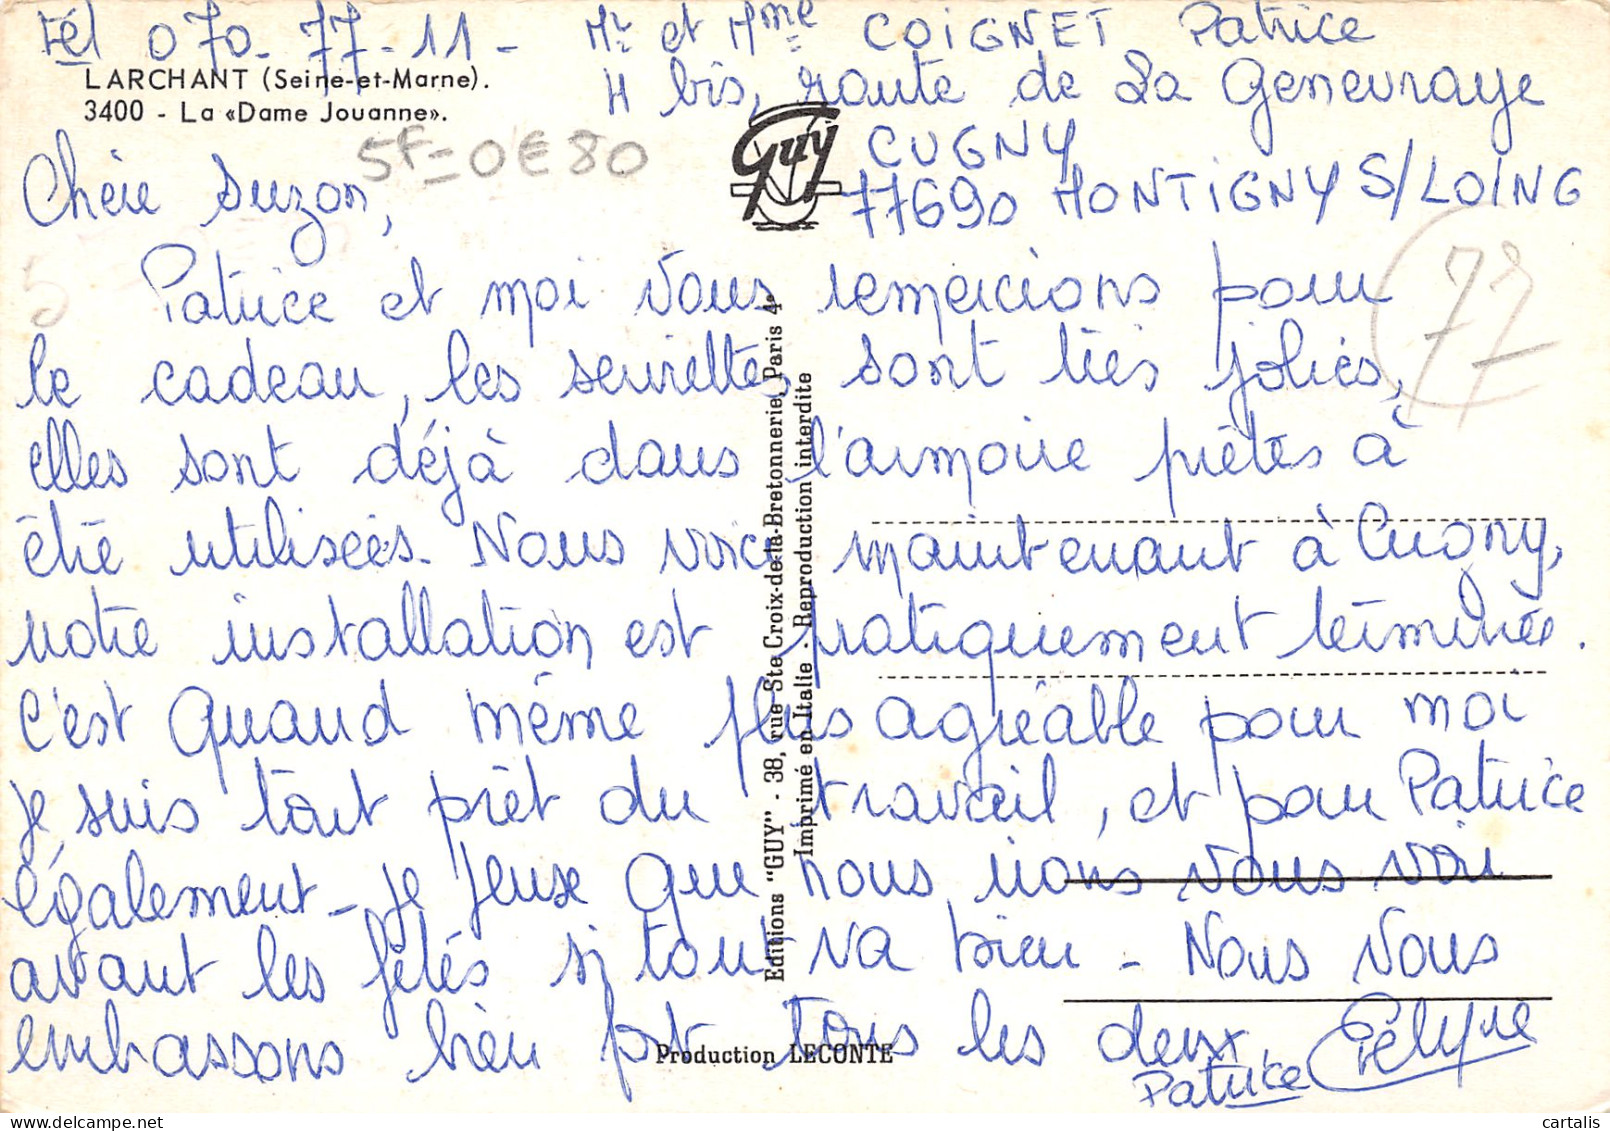 Tél 070-77-11- Mr et Mme COIGNET Patrice
4 bis, route de La Genevraye
LARCHANT (Seine-et-Marne).
3400 - La «Dame Jouanne».
Guy
CUGNY
77690 MONTIGNY S/LOING
5F=0€80
77
5
Chère Suzon,
Patrice et moi vous remercions pour
le cadeau, les serviettes sont très jolies,
elles sont déjà dans l'armoire prêtes à
être utilisées. Nous voici maintenant à Cugny,
notre installation est pratiquement terminée.
C'est quand même plus agréable pour moi
je suis tout prêt du travail, et pour Patrice
également - je pense que nous irons vous voir
avant les fêtes si tout va bien - Nous vous
embrassons bien fort tous les deux.
Patrice
Editions "GUY" - 38, rue Ste Croix-de-la-Bretonnerie, Paris 4e
Imprimé en Italie - Reproduction interdite
Production LECONTE
cartalis